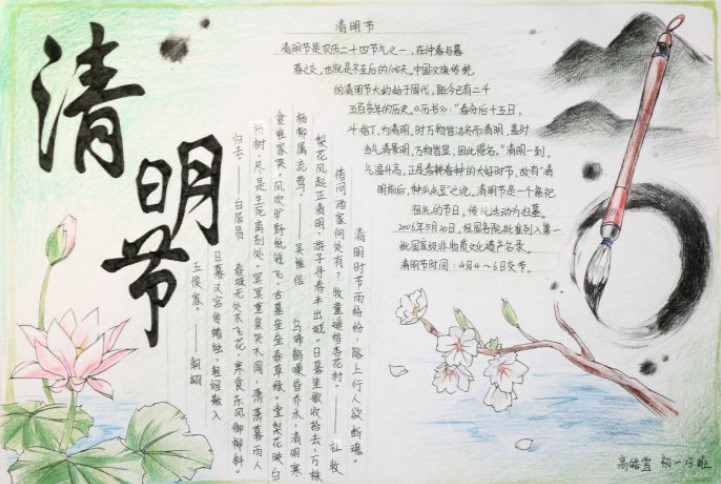 清明节
清明节
清明节是农历二十四节气之一，在仲春与暮
春之交，也就是冬至后的108天。中国汉族传统
的清明节大约始于周代，距今已有二千
五百多年的历史。《历书》："春分后十五日，
斗指丁，为清明，时万物皆洁齐而清明，盖时
当气清景明，万物皆显，因此得名。"清明一到，
气温升高，正是春耕春种的大好时节，故有"清
明前后，种瓜点豆"之说。清明节是一个祭祀
祖先的节日，传统活动为扫墓。
2006年5月20日，经国务院批准列入第一
批国家级非物质文化遗产名录。
清明节时间：4月4～6日交节。
清明时节雨纷纷，路上行人欲断魂。
借问酒家何处有？牧童遥指杏花村。——杜牧
梨花风起正清明，游子寻春半出城。日暮笙歌收拾去，万株
杨柳属流莺。——吴惟信 乌啼鹊噪昏乔木，清明寒
食谁家哭。风吹旷野纸钱飞，古墓垒垒春草绿。棠梨花映白
杨树，尽是生死离别处。冥冥重泉哭不闻，萧萧暮雨人
归去。——白居易 春城无处不飞花，寒食东风御柳斜。
日暮汉宫传蜡烛，轻烟散入
五侯家。——韩翃
高皓雪 初一